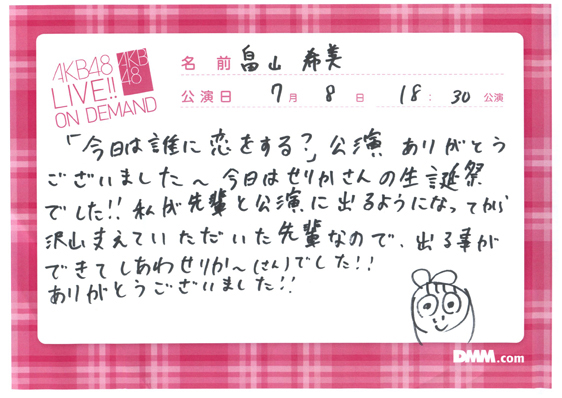 AKB48
LIVE!!
ON DEMAND
AKB
48
名前 畠山 希美
公演日 7月 8日 18:30公演
「今日は誰に恋をする?」公演 ありがとう
ございました〜 今日はせりかさんの生誕祭
でした!! 私が先輩と公演に出るようになってから
沢山支えていただいた先輩なので、出る事が
できてしあわせりか〜(さん)でした!!
ありがとうございました!!
DMM.com